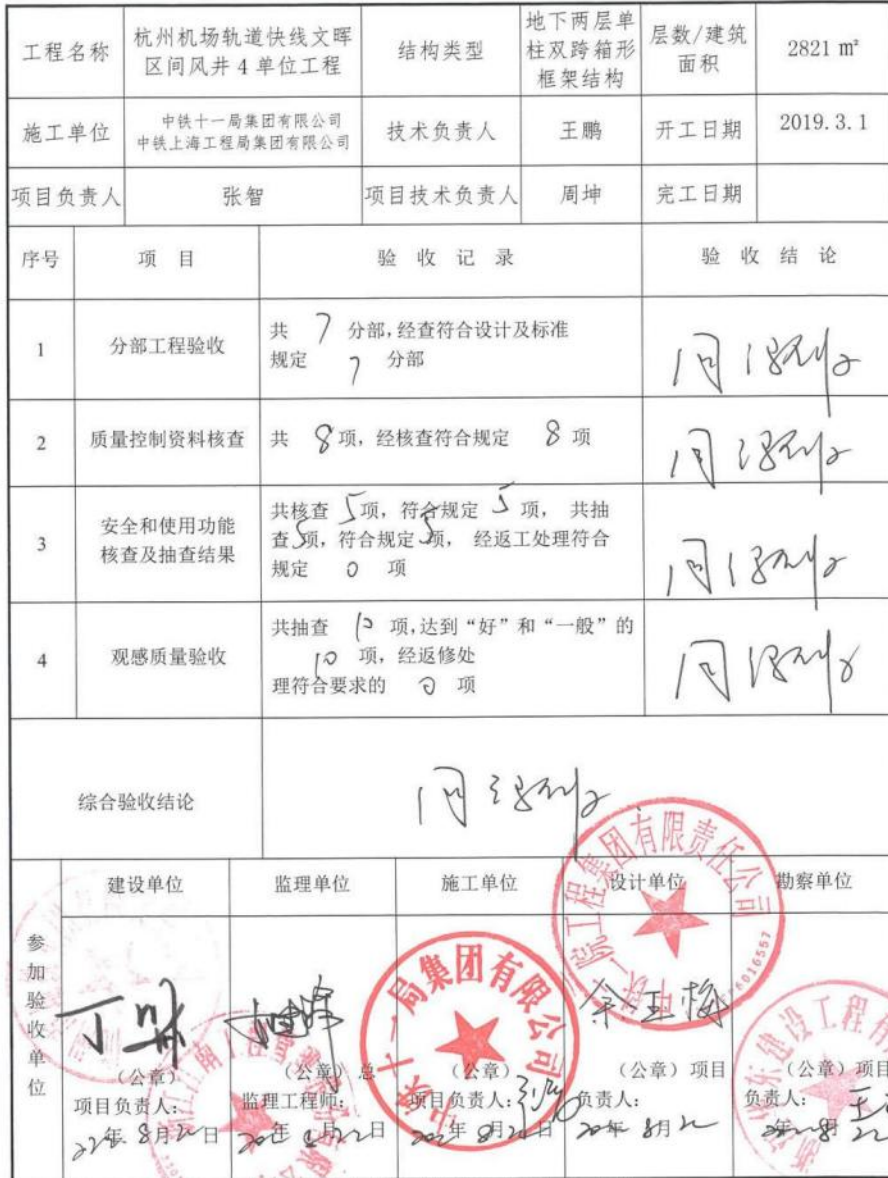 工程名称
杭州机场轨道快线文晖
区间风井 4 单位工程
结构类型
地下两层单
柱双跨箱形
框架结构
层数/建筑
面积
2821 m²
施工单位
中铁十一局集团有限公司
中铁上海工程局集团有限公司
技术负责人
王鹏
开工日期
2019.3.1
项目负责人
张智
项目技术负责人
周坤
完工日期
序号
项 目
验 收 记 录
验 收 结 论
1
分部工程验收
共 7 分部,经查符合设计及标准
规定 7 分部
同意验收
2
质量控制资料核查
共 8 项，经核查符合规定 8 项
同意验收
3
安全和使用功能
核查及抽查结果
共核查 5 项，符合规定 5 项， 共抽
查 5 项，符合规定 5 项， 经返工处理符合
规定 0 项
同意验收
4
观感质量验收
共抽查 10 项,达到“好”和“一般”的
10 项，经返修处
理符合要求的 0 项
同意验收
综合验收结论
同意验收
参加验收单位
建设单位
监理单位
施工单位
设计单位
勘察单位
中铁十一局集团有限公司
院工程集团有限责任公司
6016557
（公章）
项目负责人：
年 8月 日
（公章）总
监理工程师：
年 月22日
（公章）
项目负责人：
年 8月 日
余玉梅
（公章）项目
负责人：
年 8月22
（公章）项目
负责人：
年 8月22